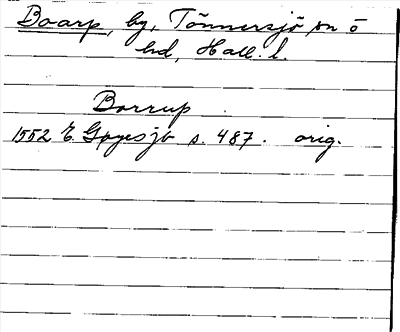 Boarp, by, Tönnersjö sn ö
hd, Hall. l.
Borrup
1552 E. Gøyesjb s. 487. orig.